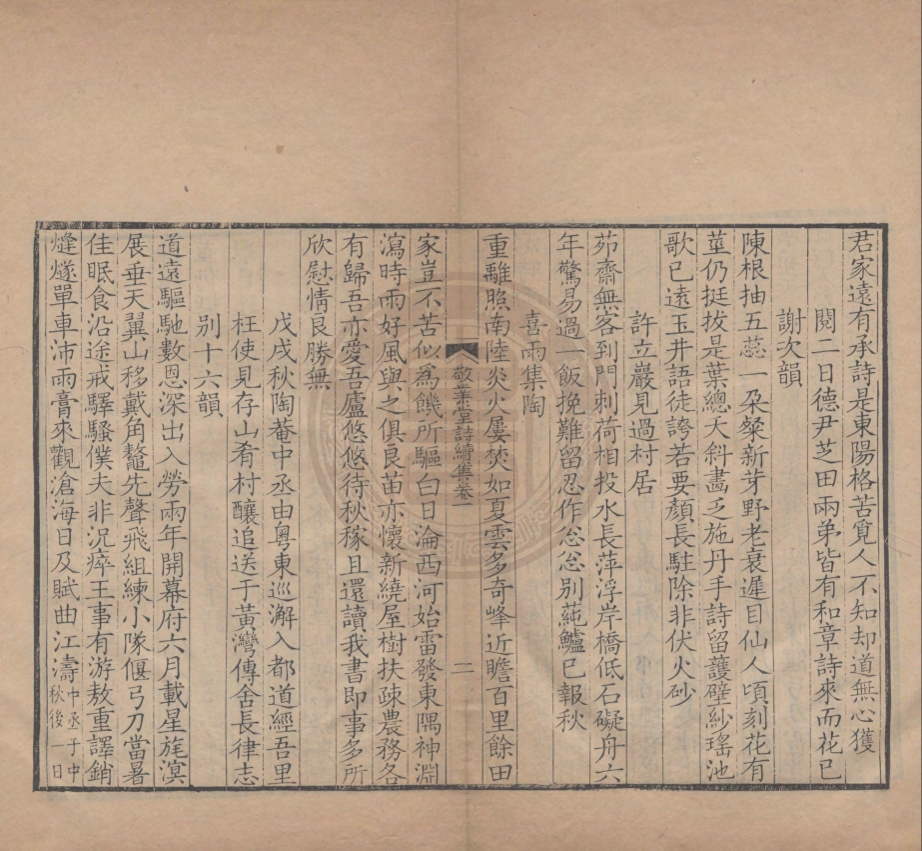 君家遠有承詩是東陽格苦覓人不知却道無心獲
閱二日德尹芝田兩弟皆有和章詩來而花已
謝次韻
陳根抽五蕊一朶粲新芽野老衰遲目仙人頃刻花有
莖仍挺拔是葉總夭斜畵乏施丹手詩留護壁紗瑤池
歌已遠玉井語徒誇若要顏長駐除非伏火砂
許立巖見過村居
茆齋無客到門刺荷相投水長萍浮岸橋低石礙舟六
年驚易過一飯挽難留忍作怱怱別蒓鱸已報秋
喜雨集陶
重離照南陸炎火屢焚如夏雲多奇峰近瞻百里餘田
敬業堂詩續集卷一
二
家豈不苦似爲饑所驅白日淪西河始雷發東隅神淵
瀉時雨好風與之俱良苗亦懷新繞屋樹扶疎農務各
有歸吾亦愛吾廬悠悠待秋稼且還讀我書即事多所
欣慰情良勝無
戊戌秋陶菴中丞由粵東巡澥入都道經吾里
枉使見存山肴村釀追送于黃灣傳舍長律志
别十六韻
道遠驅馳數恩深出入勞兩年開幕府六月載星旄溟
展垂天翼山移戴角鼇先聲飛組練小隊偃弓刀當暑
佳眠食沿途戒驛騷僕夫非况瘁王事有游敖重譯銷
㷭燧單車沛雨膏來觀滄海日及賦曲江濤中丞于中
秋後一日